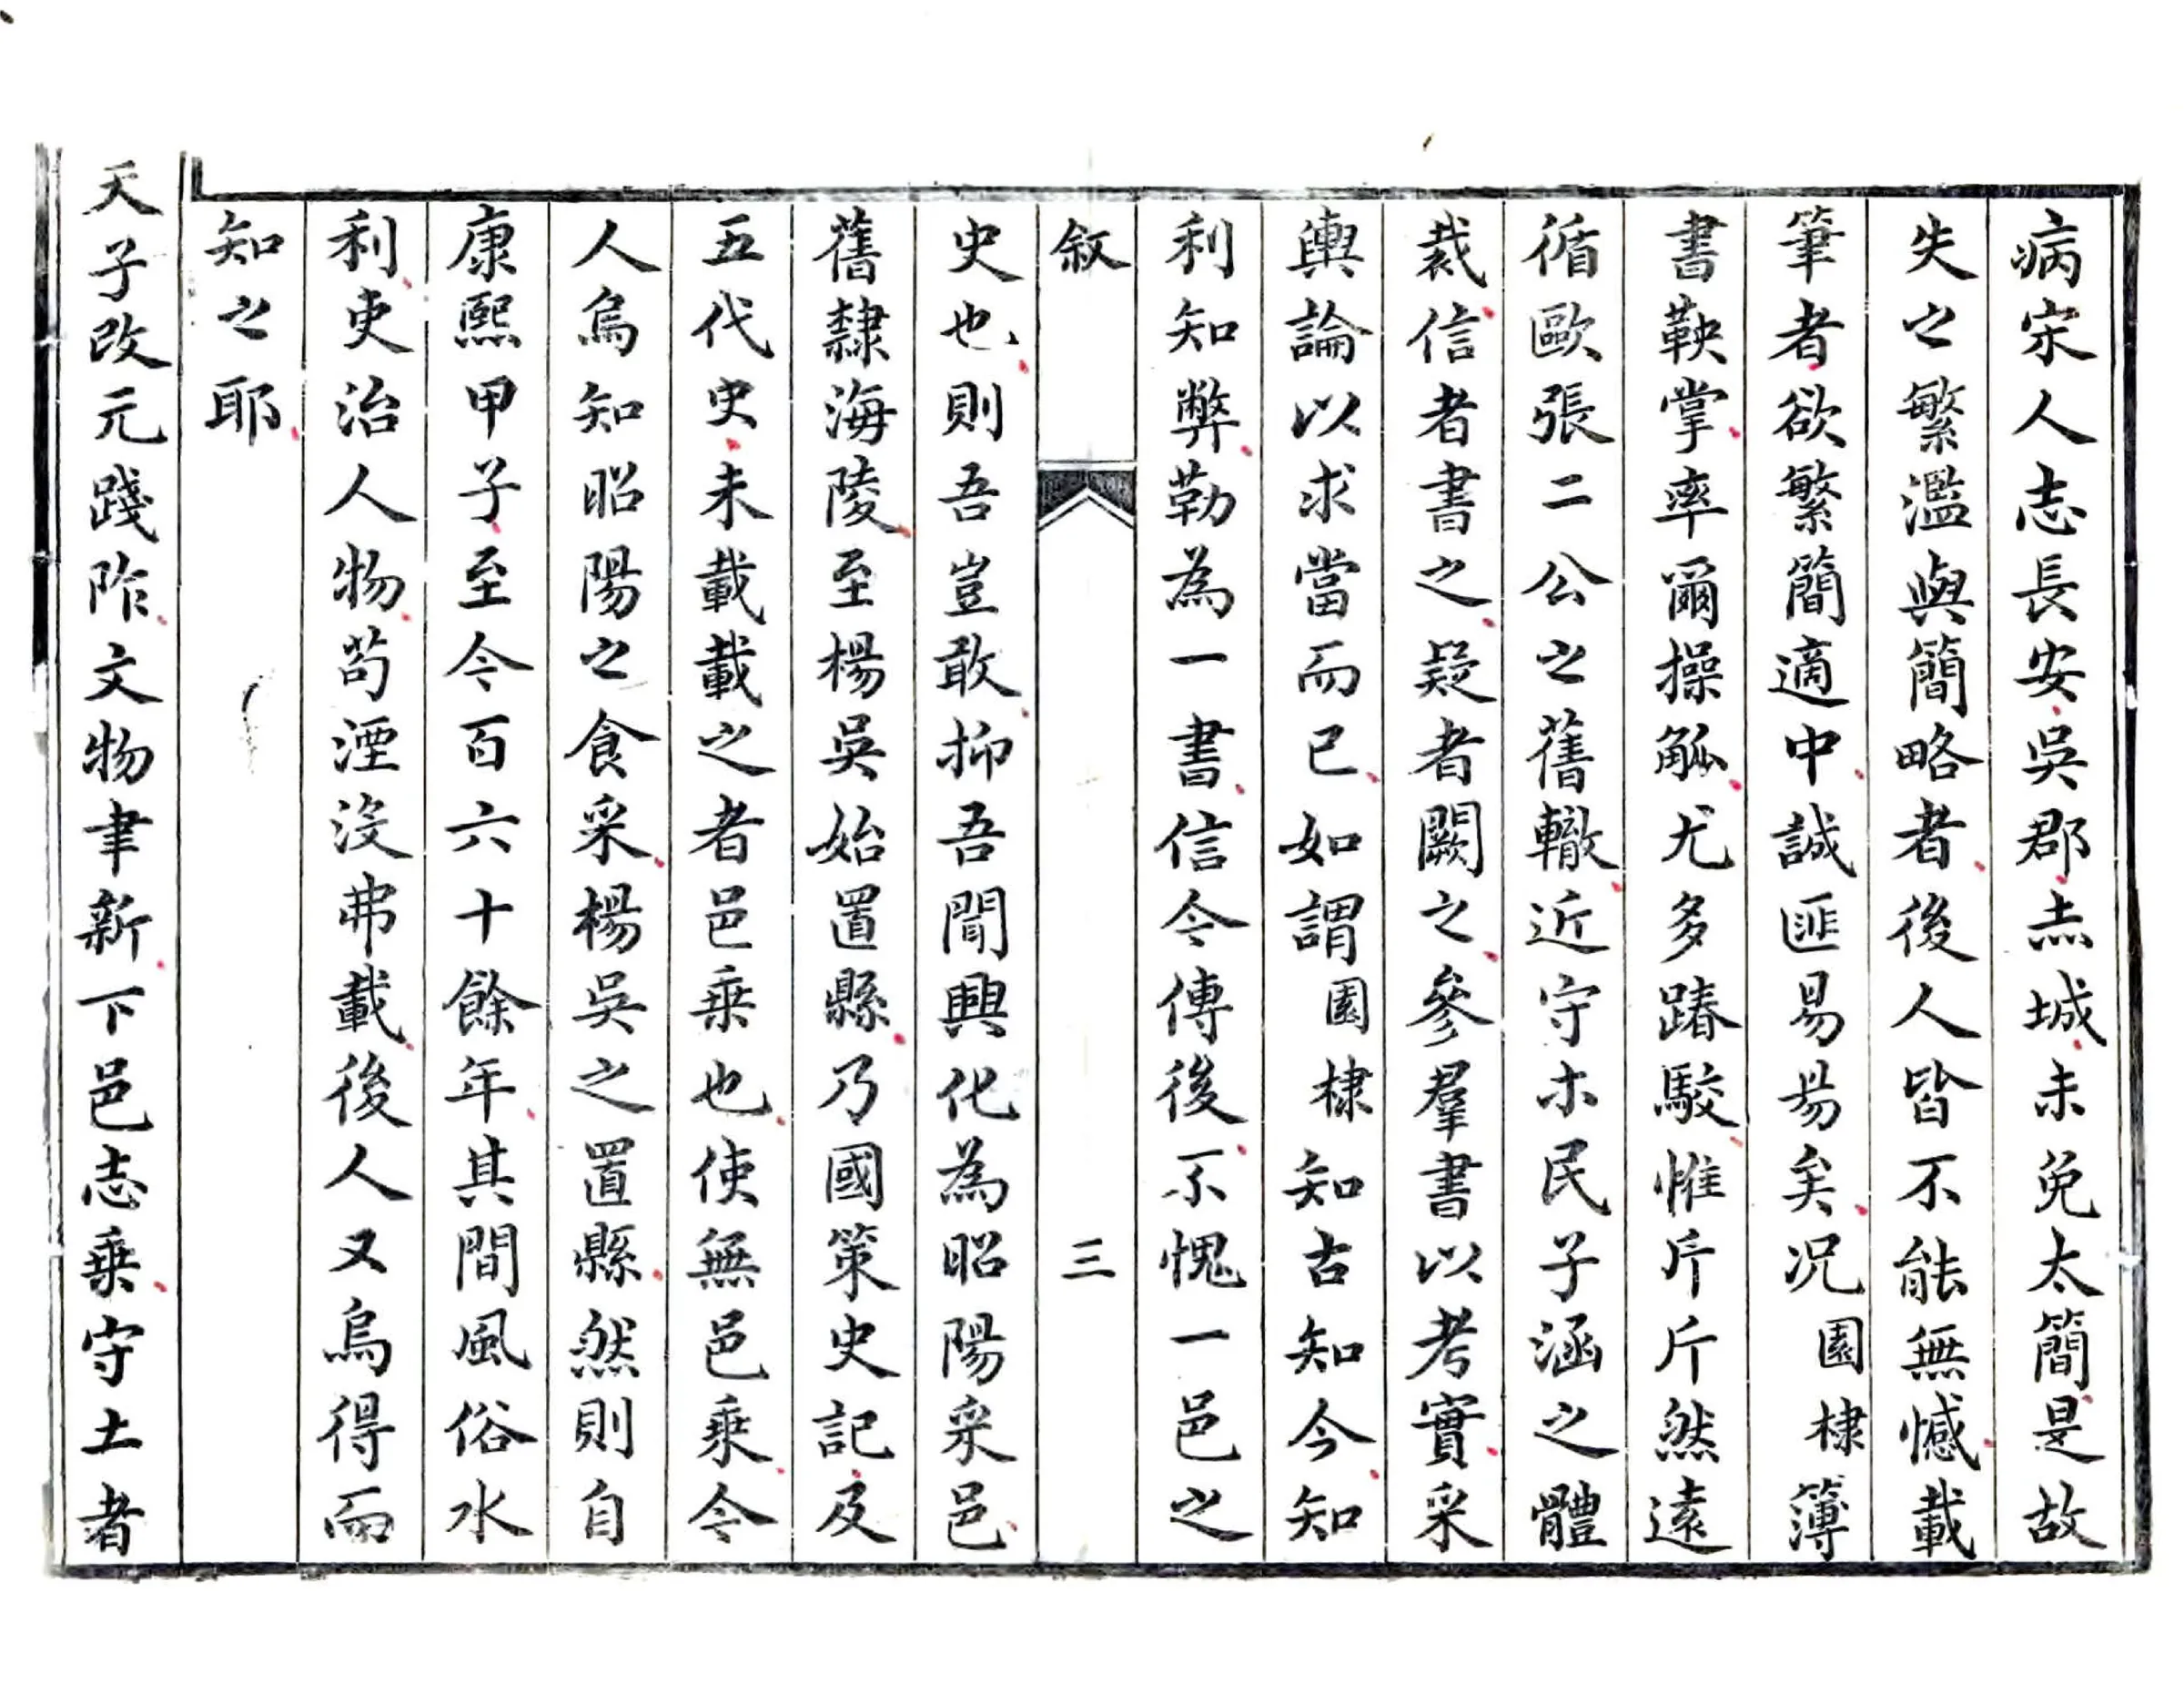 病宋人志長安吳郡志城未免太簡是故
失之繁濫與簡略者後人皆不能無憾載
筆者欲繁簡適中誠匪易易矣况園棣簿
書鞅掌率爾操觚尤多踳駁惟斤斤然遠
循歐張二公之舊轍近守木民子涵之體
裁信者書之疑者闕之參羣書以考實采
輿論以求當而已如謂園棣知古知今知
利知弊勒為一書信今傳後不愧一邑之
敘 三
史也則吾豈敢抑吾聞興化為昭陽采邑
舊隸海陵至楊吳始置縣乃國策史記及
五代史未載載之者邑乘也使無邑乘令
人烏知昭陽之食采楊吳之置縣然則自
康熙甲子至今百六十餘年其間風俗水
利吏治人物苟湮沒弗載後人又烏得而
知之耶
天子改元踐阼文物聿新下邑志乘守土者